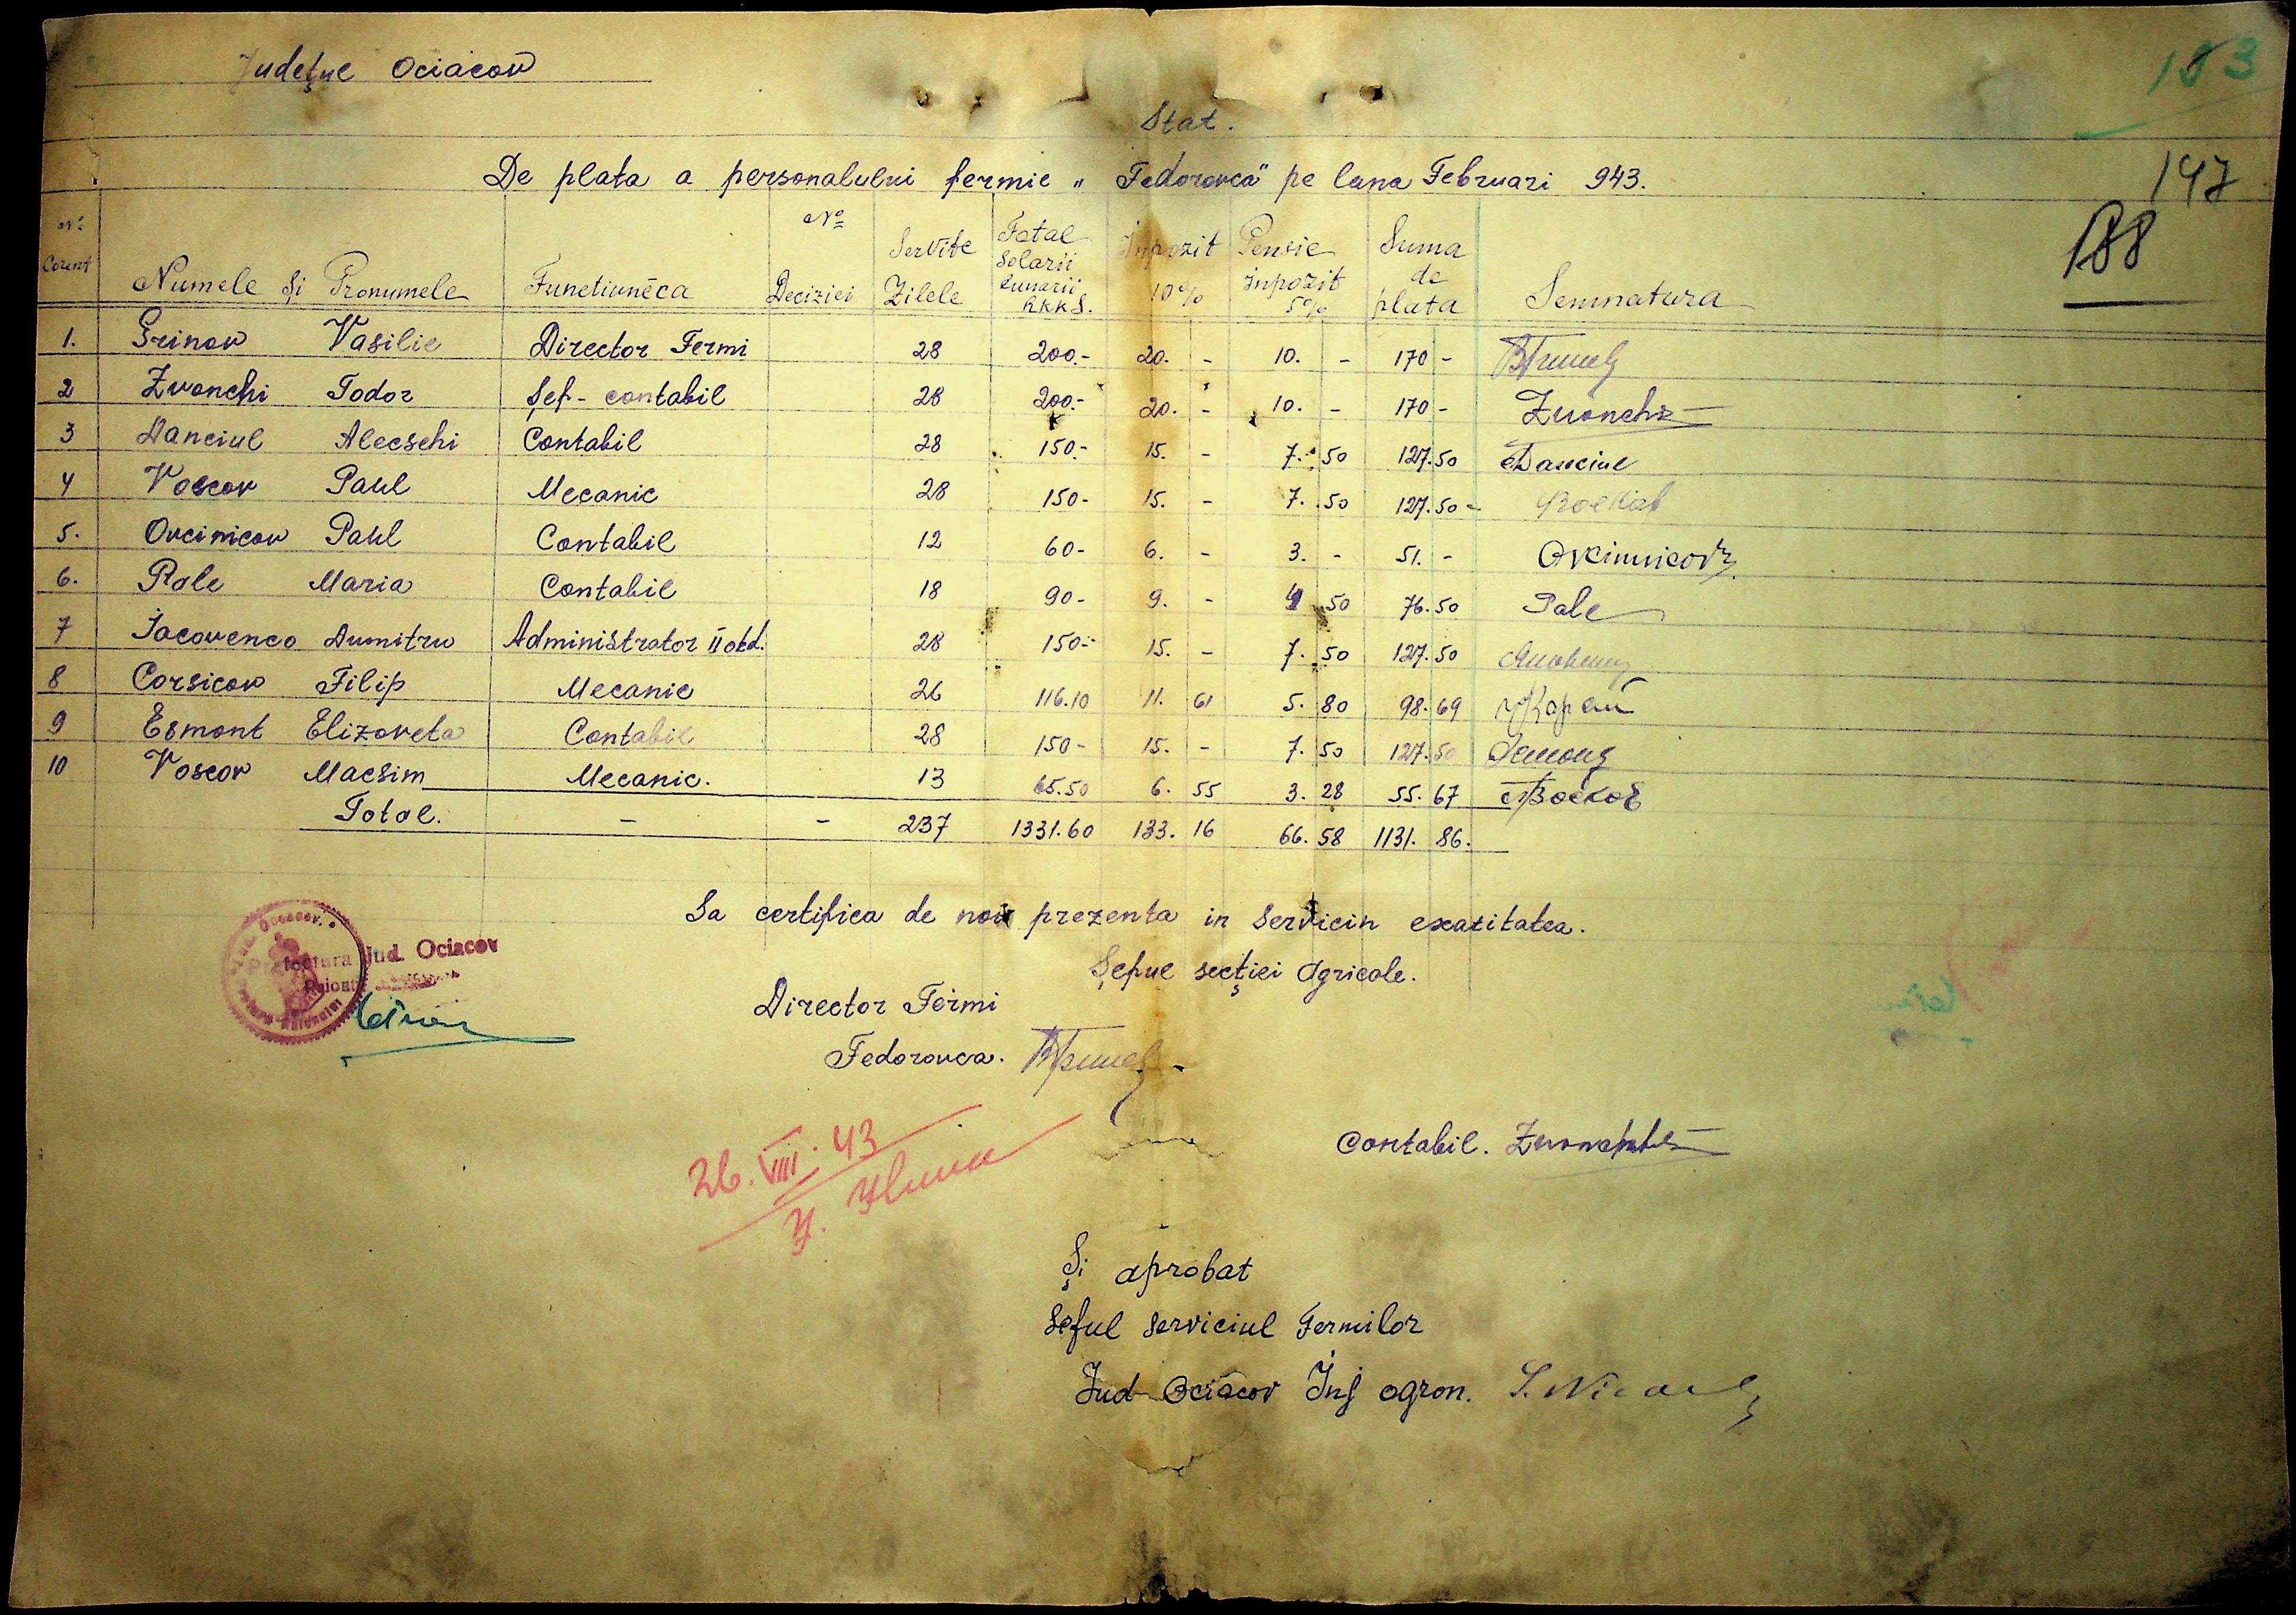 Judeţul Ociacov
193
Stat.
De plata a personalului fermie „Fedorovca" pe luna Februari 943.
147
188
№ Curent | Numele şi Pronumele | Functiuneca | № Deciziei | Servite Zilele | Total Solarii Lunarii RKKS. | Inpozit 10% | Pensie Inpozit 5% | Suma de plata | Semnatura
1. Grinov Vasilie Director Fermi 28 200.- 20. - 10. - 170 -
2 Zvonchi Todor Şef-contabil 28 200.- 20. - 10. - 170 - Zvonchi
3 Danciul Alecschi Contabil 28 150.- 15. - 7. 50 127.50 Danciul
4 Voscov Paul Mecanic 28 150- 15. - 7. 50 127.50-
5. Ovcinicov Paul Contabil 12 60- 6. - 3. - 51. - Ovcinnicov
6. Pale Maria Contabil 18 90- 9. - 4 50 76.50 Pale
7 Iacovenco Dumitru Administrator II obd. 28 150.- 15. - 7. 50 127.50
8 Corsicov Filip Mecanic 26 116.10 11. 61 5. 80 98.69
9 Esmont Elizoveta Contabil 28 150- 15. - 7. 50 127.50
10 Voscov Macsim Mecanic. 13 65.50 6. 55 3. 28 55. 67
Total. - - 237 1331.60 133. 16 66. 58 1131. 86.
Sa certifica de noi prezenta in servicin exatitatea.
Şeful secţiei agricole.
Jud. Ociacov
Director Fermi
Fedorovca.
26.VIII.43
Contabil. Zvonchi
Şi aprobat
Seful Serviciul Fermilor
Jud Ociacov Inj agron.